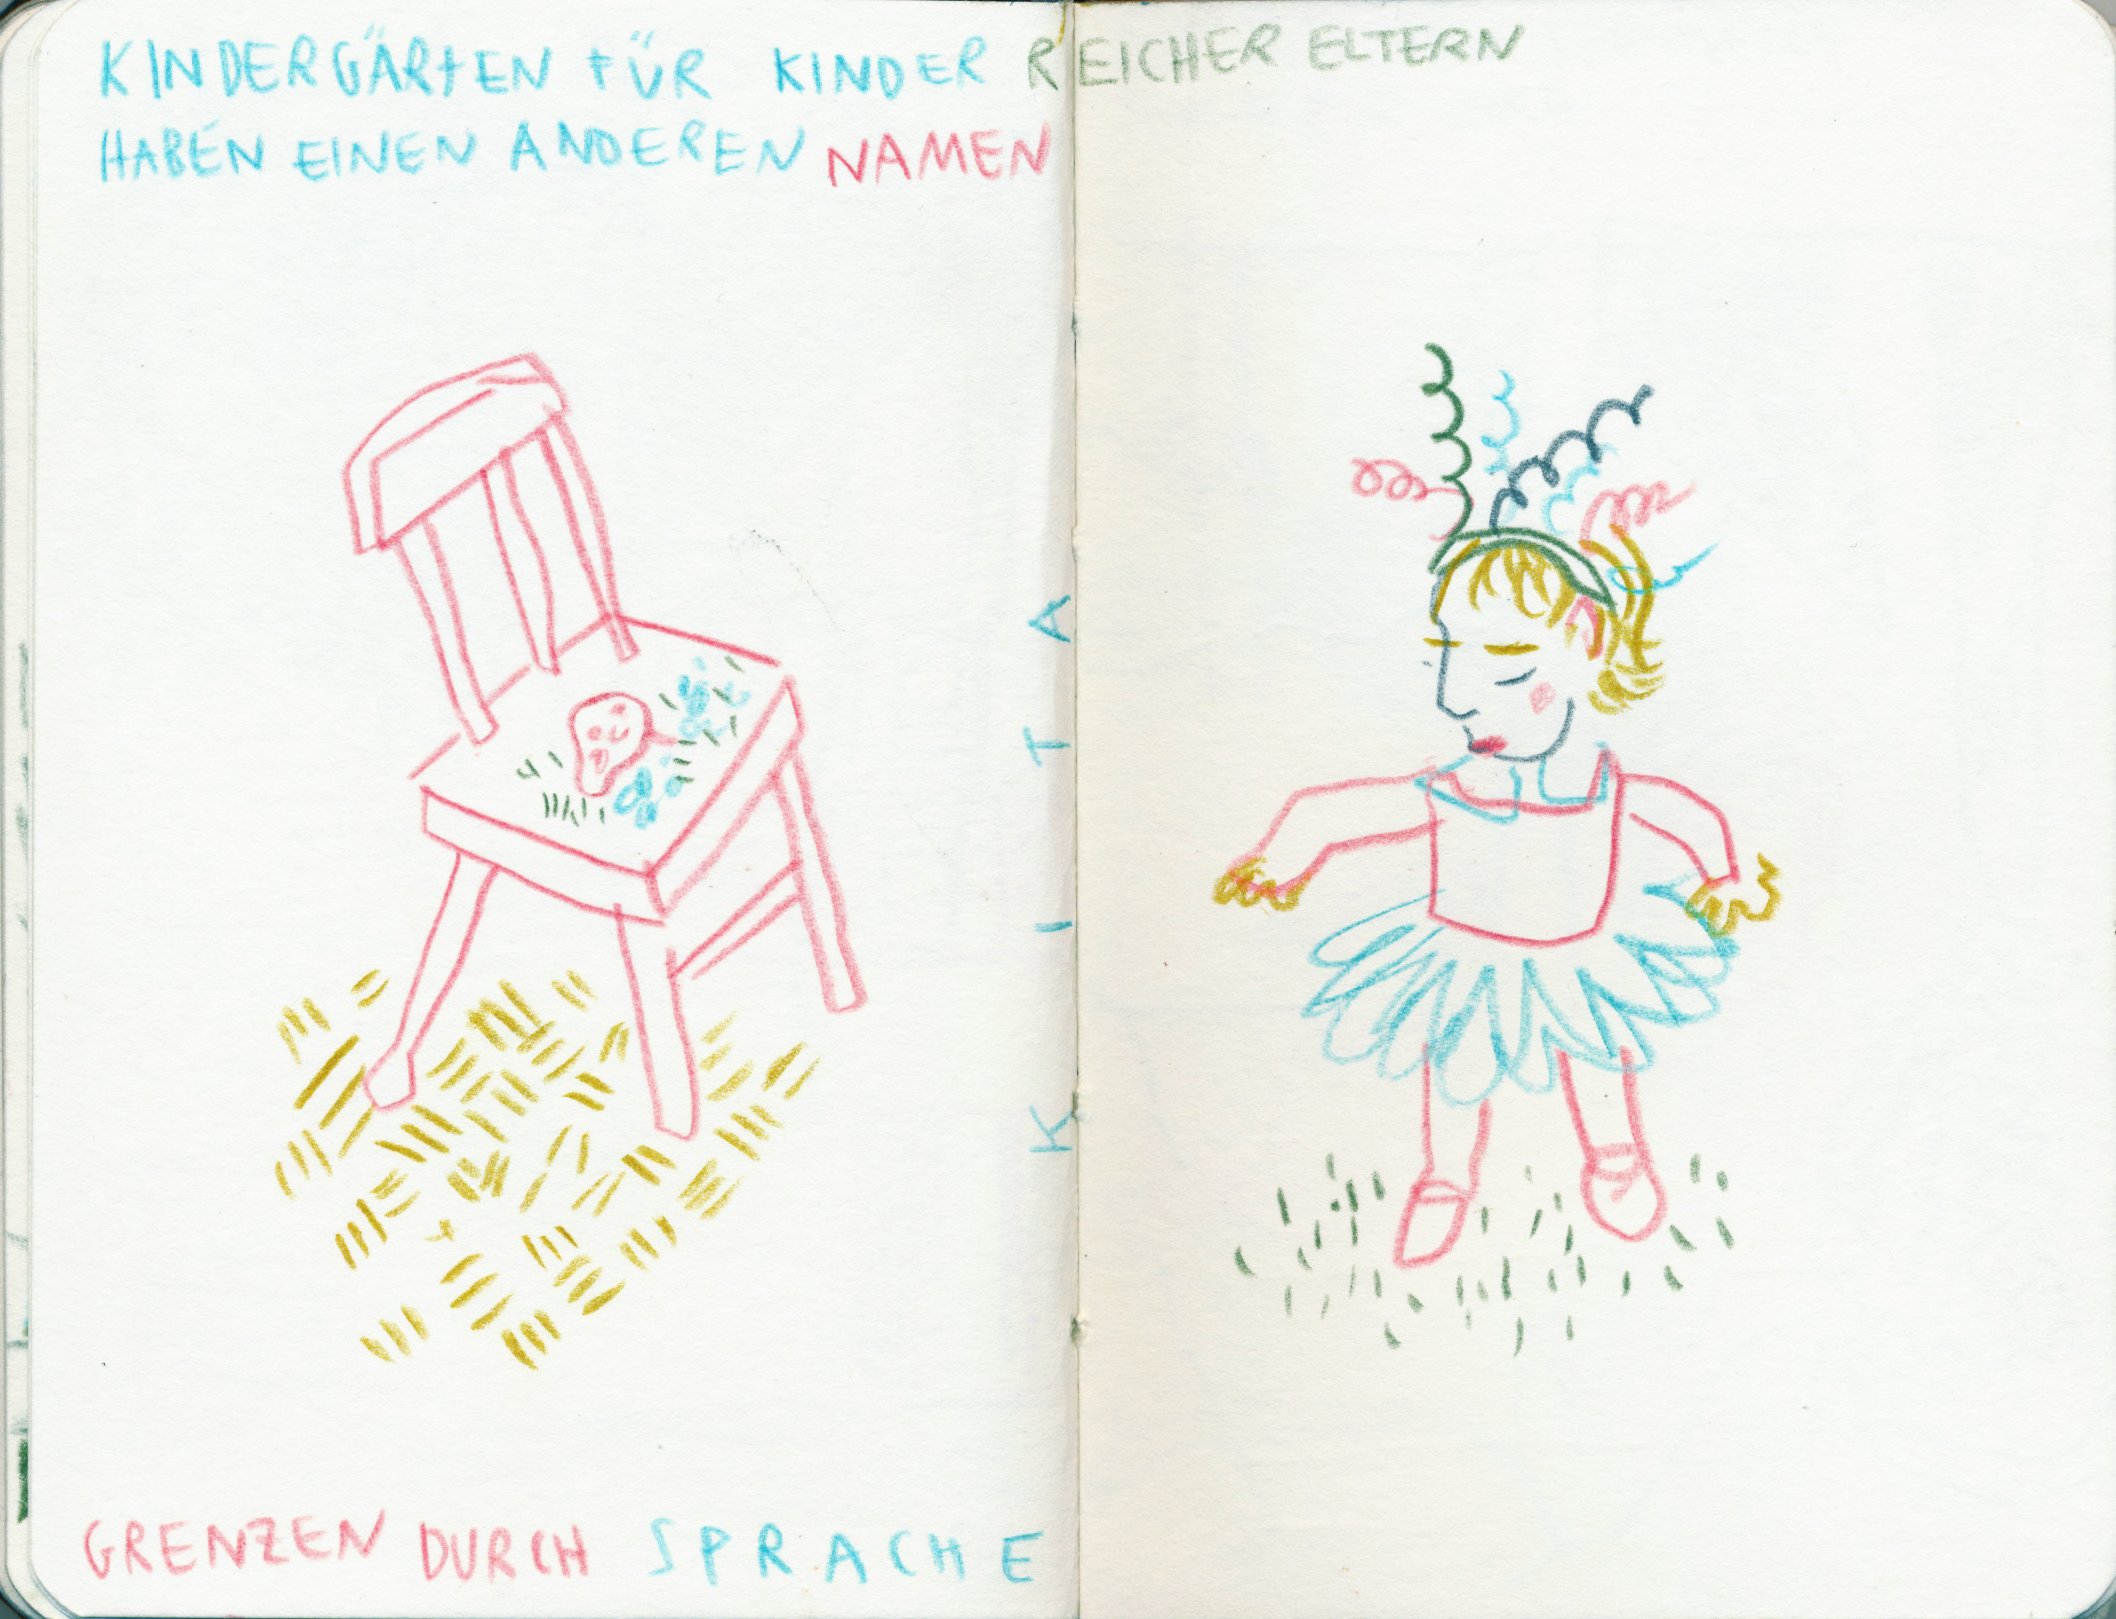 KINDERGÄRTEN FÜR KINDER REICHER ELTERN
HABEN EINEN ANDEREN NAMEN
KITA
GRENZEN DURCH SPRACHE